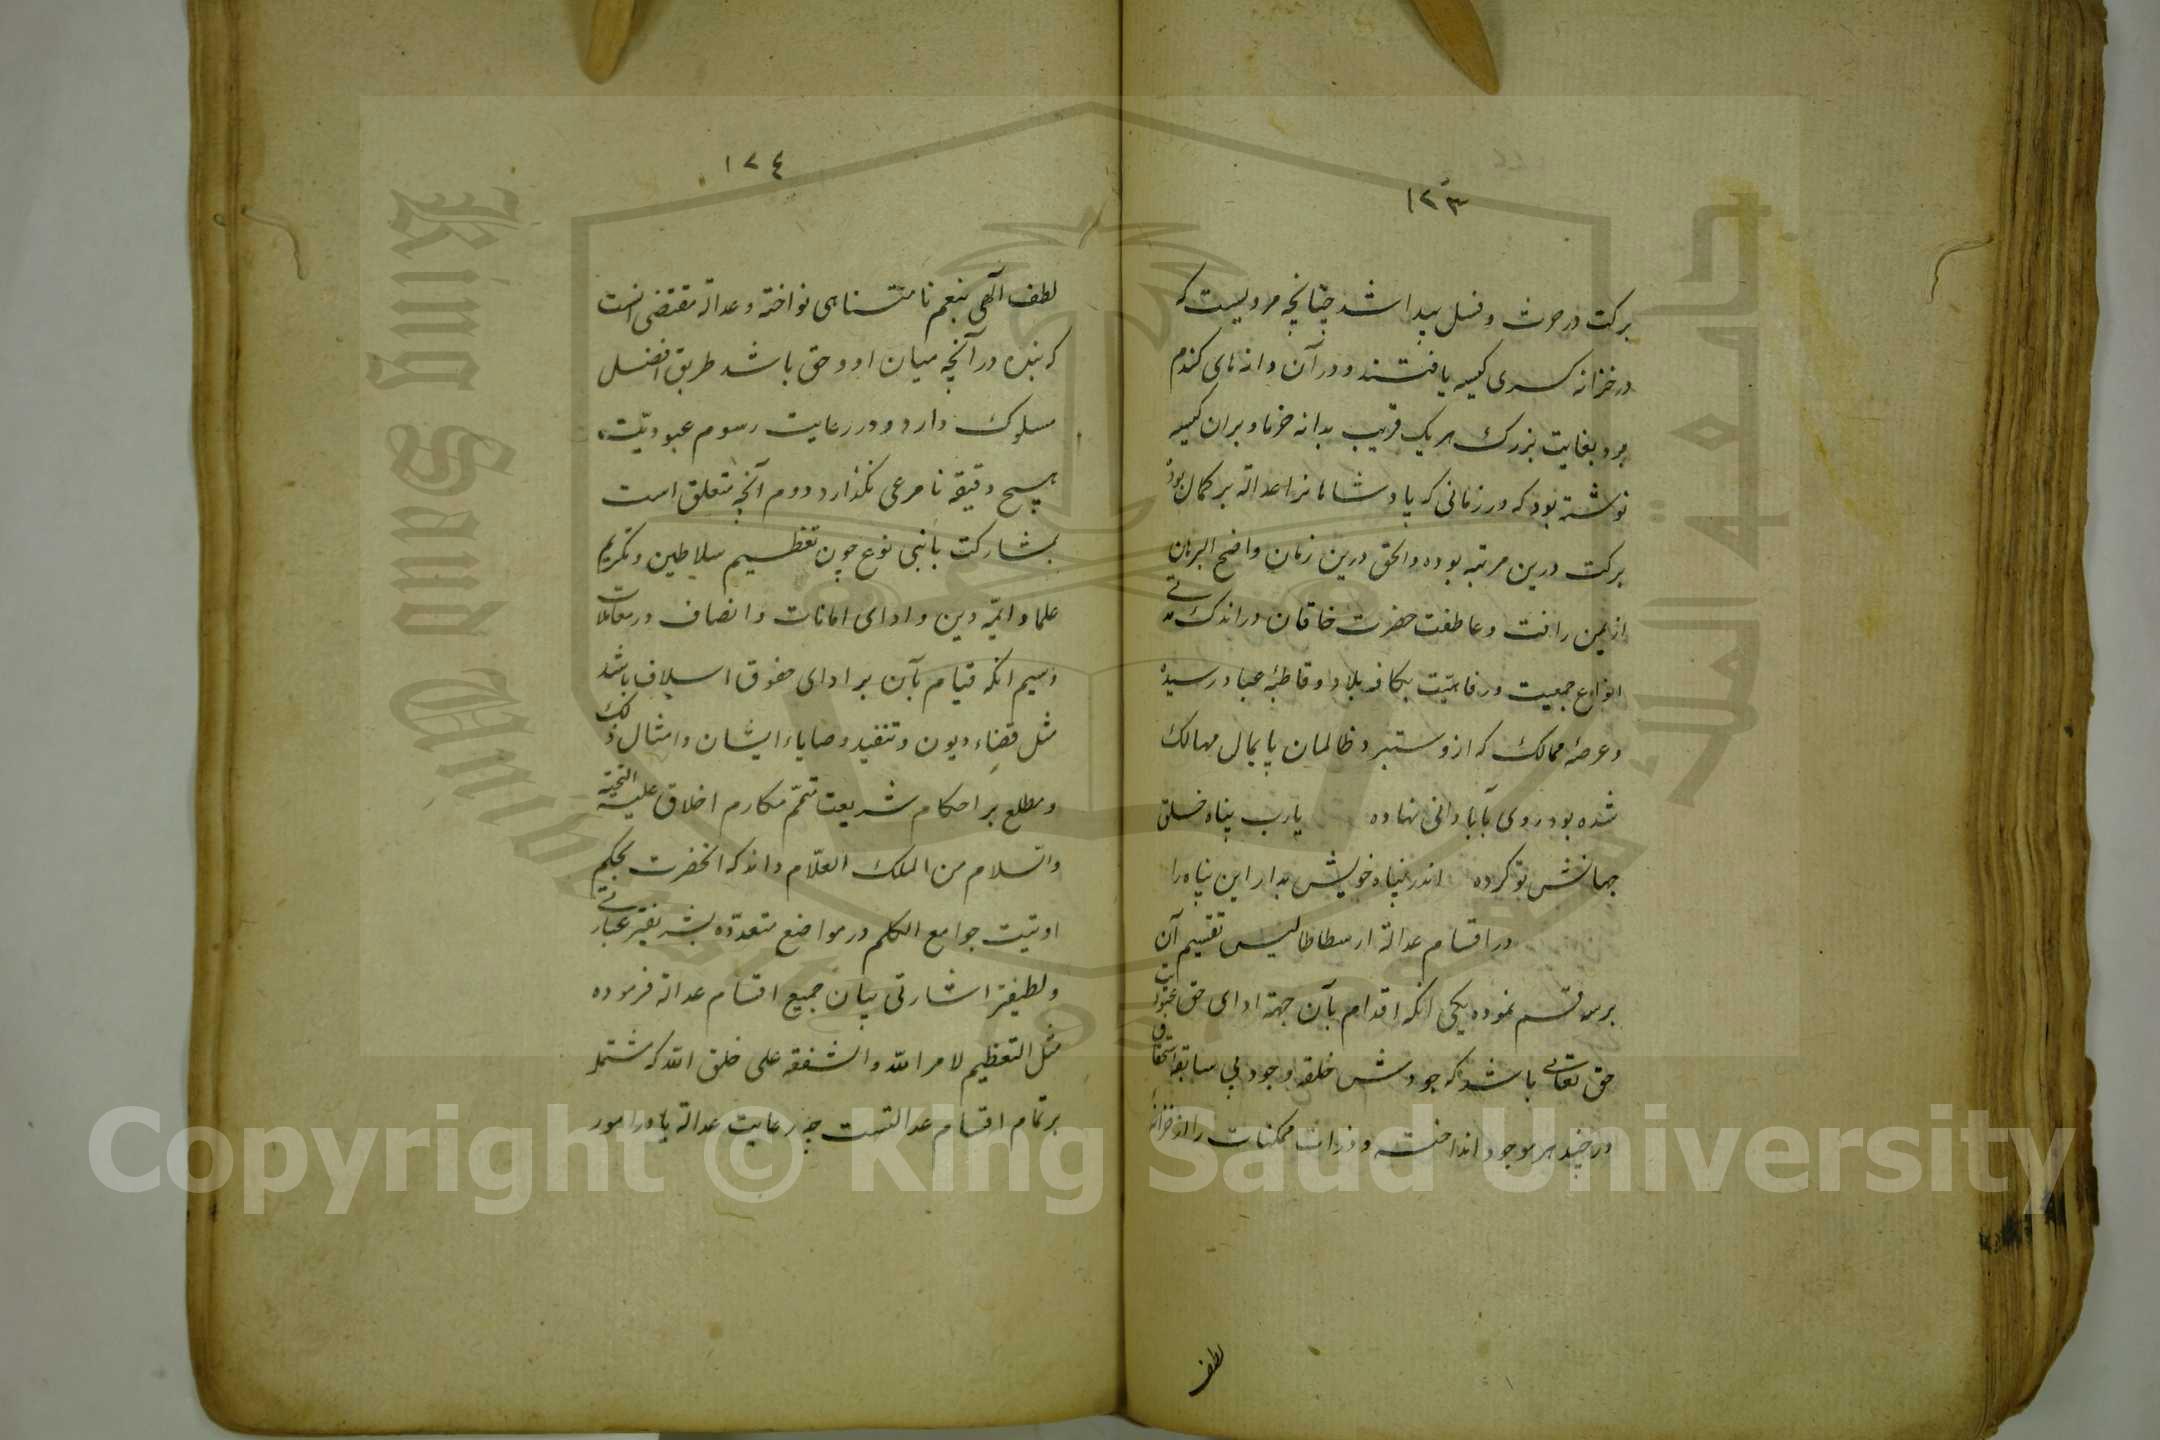 ١٢٣
برکت در حرث و نسل پیدا شد چنانچه مرویست که
در خزانه کسری کیسه یافتند و در آن دانه های کندم
بود بغایت بزرک هر یک قریب بدانه خرما و بران کیسه
نوشته بود که در زمانی که پادشاهانرا عدالة بر کمال بود
برکت درین مرتبه بوده والحق درین زمان واضح البرهان
از یمن رافت و عاطفت حضرت خاقان در اندک مدتے
انواع جمعیت و رفاهیّت بکافه بلاد و قاطبۀ عباد رسیده
و عرصۀ ممالک که از دستبرد ظالمان پایمال مهالک
شده بود روی بآبادانی نهاده یارب پناه خلق
جهانش تو کرده اندر پناه خویش بدار این پناه را
در اقسام عدالة ارسطاطالیس تقسیم آن
برسه قسم نموده یکی انکه اقدام بآن جهة ادای حق عبودیت
حق تعالے باشد که جودش خلقه وجود بی سابقه استحقاق
در جید هر موجود انداخته و ذوات ممکنات را از خزانۀ
لطف
١٢٤
لطف آلهی بنعم نامتناهی نواخته و عدالة مقتضی آنست
که بنده در آنچه میان او و حق باشد طریق افضل
مسلوک دارد و در رعایت رسوم عبودیّت
هیچ دقیقه نامرعی نکذارد دوم آنچه متعلق است
بمشارکت بابنی نوع چون تعظیم سلاطین و تکریم
علما و ایمّه دین و ادای امانات و انصاف در معاملات
و سیم انکه قیام بآن بر ادای حقوق اسلاف باشد
مثل قضاء دیون و تنفیذ وصایاء ایشان و امثال ذلک
و مطلع بر احکام شریعت متمّم مکارم اخلاق علیه التحیّه
والسلام من الملک العلّام داند که انحضرت بحکم
اوتیت جوامع الکلم در مواضع متعدّده بشریفتر عبارتے
و لطیفتر اشارتی بیان جمیع اقسام عدالة فرموده
مثل التعظیم لامر اللّه والشفقه علی خلق اللّه که مشتمل
بر تمام اقسام عدالتست چه رعایت عدالة یا در امور
Copyright © King Saud University
King Saud University
جامعة الملك
1957